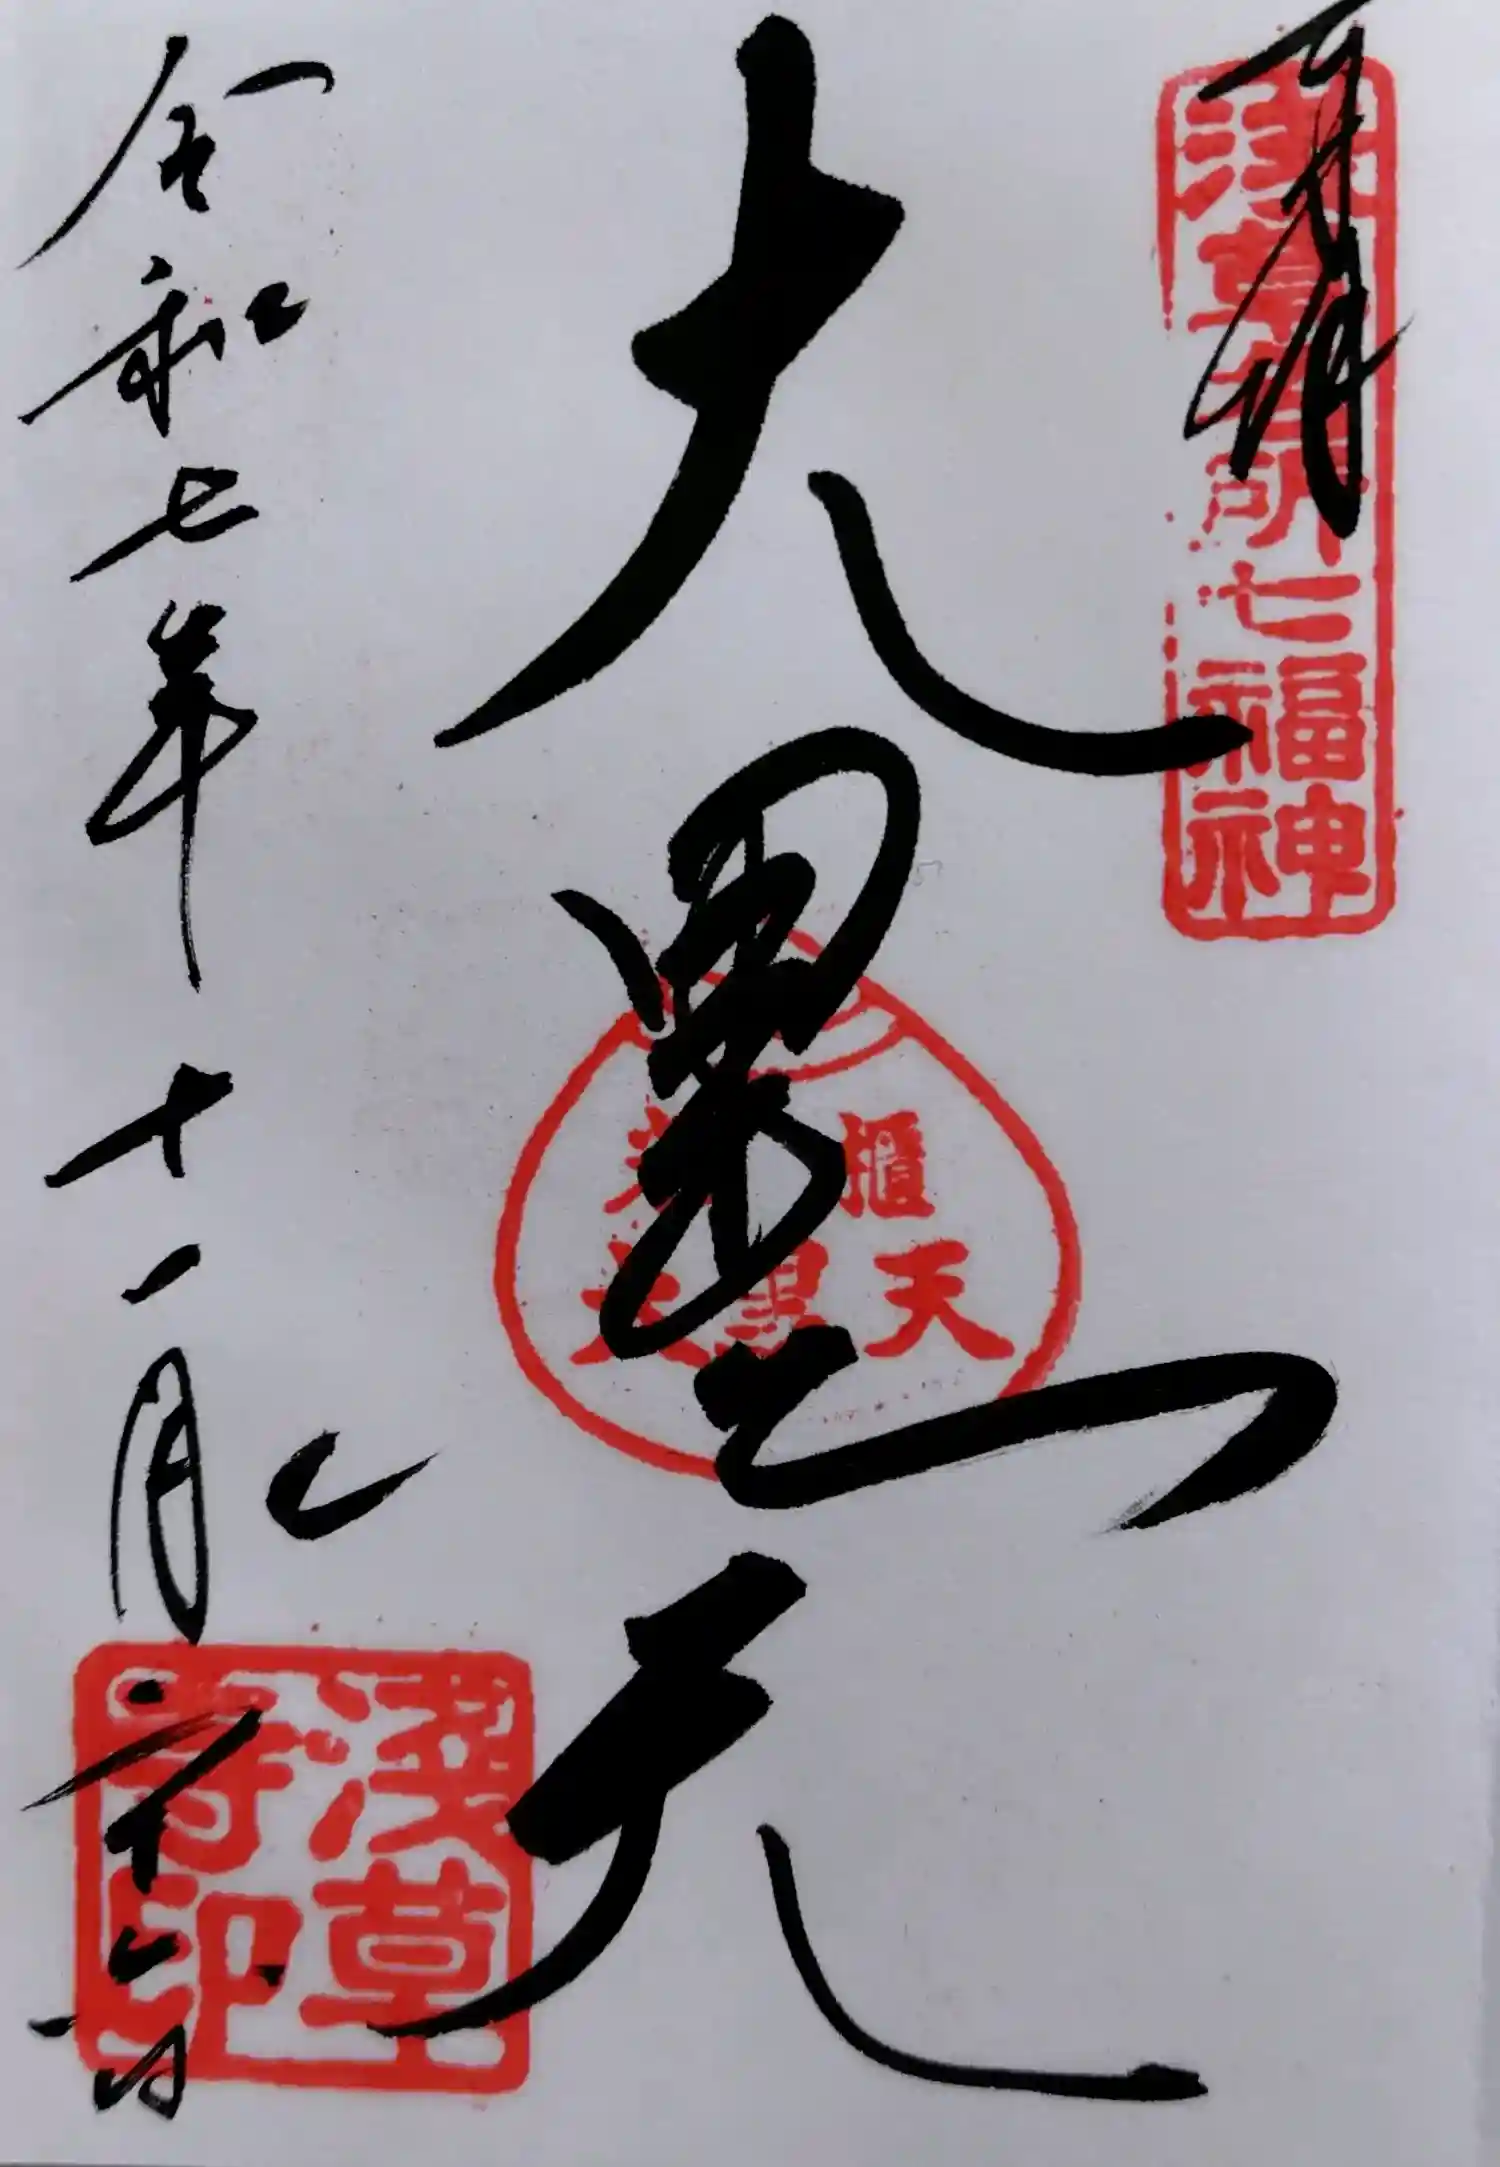 奉拝
浅草名所七福神
大黒天
米櫃
大黒天
令和七年十一月
浅草
寺印